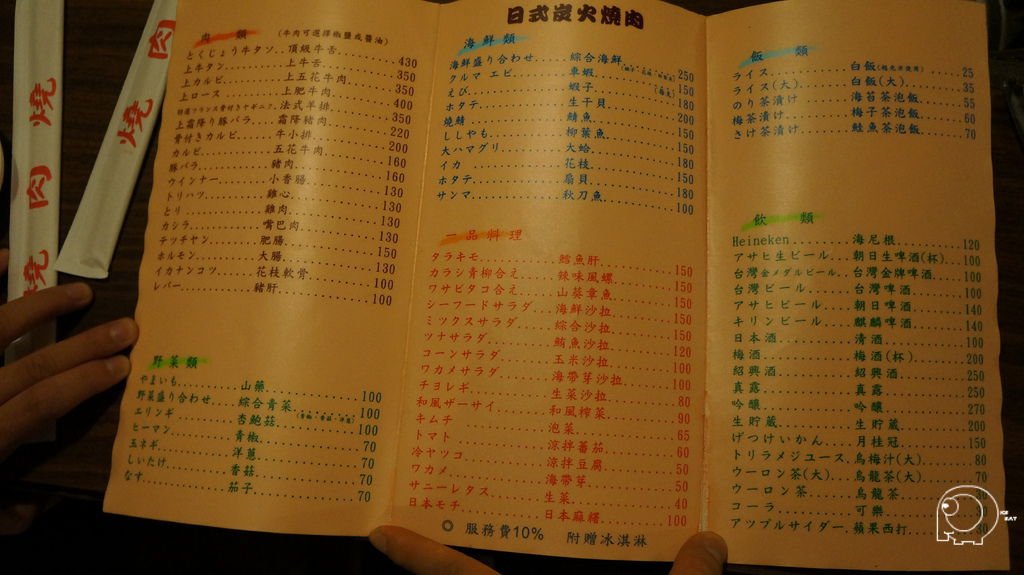 日式炭火燒肉
肉 類 (牛肉可選擇椒鹽或醬油)
とくじょう牛タン..頂級牛舌............430
上牛タン............上牛舌............350
上カルビ............上五花牛肉........350
上ロース............上肥牛肉..........400
特選フランス骨付きヤギニク.法式羊排............350
上霜降り豚バラ....霜降豬肉..........220
骨付きカルビ......牛小排............200
カルビ..............五花牛肉..........160
豚バラ..............豬肉..............160
ウインナー........小香腸............130
トリハツ............雞心..............130
とり................雞肉..............130
カシラ..............嘴巴肉............130
テッチャン........肥腸..............150
ホルモン..........大腸..............130
イカナンコツ......花枝軟骨..........100
レバー..............豬肝..............100
野菜類
やまいも..........山藥..............100
野菜盛り合わせ....綜合青菜..........100
エリンギ..........杏鮑菇............100
ヒーマン..........青椒..............70
玉ネギ............洋蔥..............70
しいたけ..........香菇..............70
なす................茄子..............70
海鮮類
海鮮盛り合わせ....綜合海鮮..........250
クルマ エビ......車蝦..............150
えび................蝦子..............150
ホタテ............生干貝............180
燒鯖..............鯖魚..............200
ししやも..........柳葉魚............150
大ハマグリ........大蛤..............150
イカ..............花枝..............180
ホタテ............扇貝..............180
サンマ............秋刀魚............100
一品料理
タラキモ..........鱈魚肝............150
カラシ青柳合え....辣味風螺..........150
ワサビタコ合え....山葵章魚..........150
シーフードサラダ..海鮮沙拉..........150
ミックスサラダ....綜合沙拉..........150
ツナサラダ........鮪魚沙拉..........120
コーンサラダ......玉米沙拉..........100
ワカメサラダ......海帶芽沙拉........100
チヨレギ..........生菜沙拉..........80
和風ザーサイ......和風榨菜..........90
キムチ............泡菜..............65
トマト............涼拌蕃茄..........60
冷ヤツコ..........涼拌豆腐..........50
ワカメ............海帶芽............50
サニーレタス......生菜..............40
日本モチ..........日本麻糬..........100
◎ 服務費10% 附贈冰淇淋
飯 類
ライス............白飯..............25
ライス(大)........白飯(大)..........35
のり茶漬け........海苔茶泡飯........55
梅茶漬け..........梅子茶泡飯........60
さけ茶漬け........鮭魚茶泡飯........70
飲 類
Heineken..........海尼根............120
アサヒ生ビール....朝日生啤酒(杯)....100
台灣金メダルビール.台灣金牌啤酒......100
台灣ビール........台灣啤酒..........100
アサヒビール......朝日啤酒..........140
キリンビール......麒麟啤酒..........140
日本酒............清酒..............100
梅酒..............梅酒(杯)..........200
紹興酒............紹興酒............250
真露..............真露..............250
吟釀..............吟釀..............270
生貯蔵............生貯蔵............200
げつけいかん......月桂冠............150
トリラメジユース..烏梅汁(大)........80
ウーロン茶(大)....烏龍茶(大)........70
ウーロン茶........烏龍茶
コーラ............可樂
アツプルサイダー.蘋果西打
燒 肉 燒
燒 肉
ICE EAT